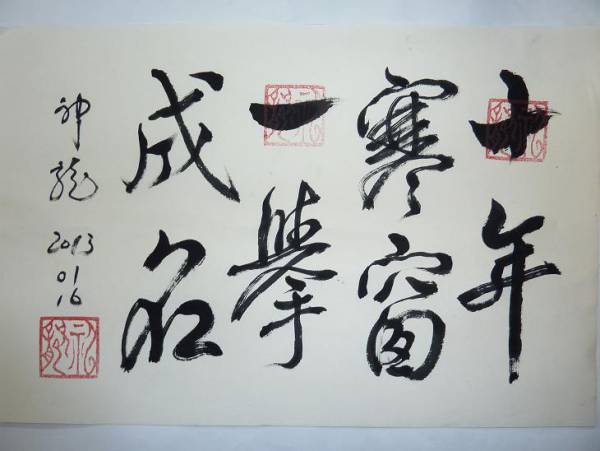 十年
寒窗
一舉
成名
神龍 2013 01 16